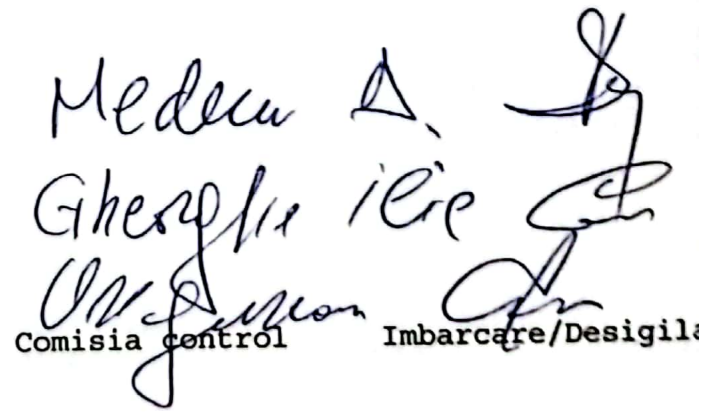 Medeu D.
Gheorghe ilie
Comisia control Imbarcare/Desigila